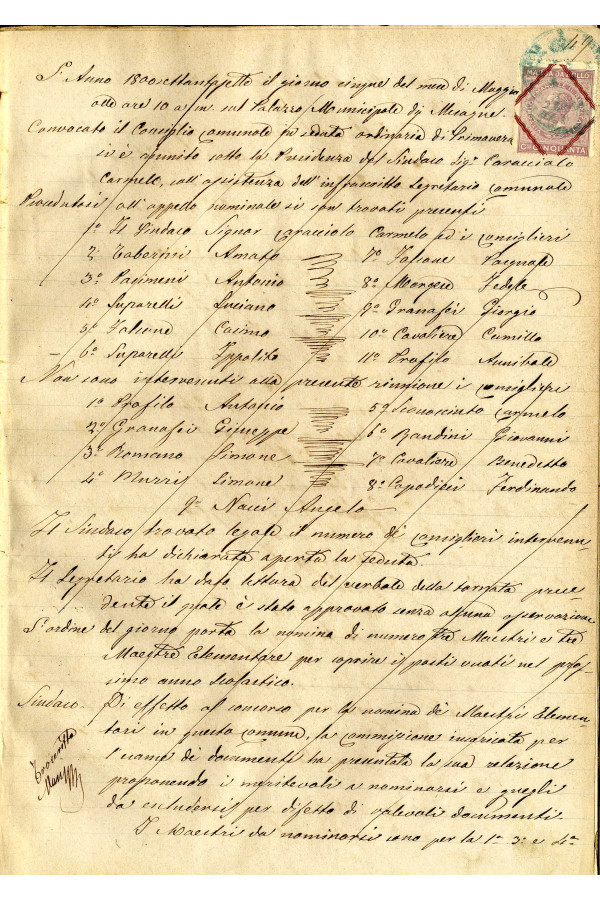 49
MARCA DA BOLLO
CMI CINQUANTA
L'Anno 1800settantasette il giorno cinque del mese di Maggio
alle ore 10 a/m. sul Palazzo Municipale di Mesagne.
Convocato il Consiglio comunale in seduta ordinaria di Primavera
si è riunito sotto la Presidenza del Sindaco Sigr Caracciolo
Carmelo, coll'assistenza dell'infrascritto Segretario comunale
Procedutosi all'appello nominale si son trovati presenti
1º Il Sindaco Signor Caracciolo Carmelo ed i consiglieri
2º Toberini Amato 7º Falcone Pasquale
3º Pasimeni Antonio 8º Morgese Fedele
4º Luparelli Luciano 9º Granafei Giorgio
5º Falcone Cosimo 10º Cavaliere Camillo
6º Luparelli Ippolito 11º Profilo Annibale
Non sono intervenuti alla presente riunione i consiglieri
1º Profilo Antonio 5º Scanosciuto Carmelo
2º Granafei Giuseppe 6º Bandini Giovanni
3º Romano Simone 7º Cavaliere Benedetto
4º Murri Simone 8º Capodieci Ferdinando
9º Nacci Angelo
Il Sindaco trovato legale il numero di consiglieri intervenu-
ti, ha dichiarata aperta la seduta.
Il Segretario ha dato lettura del verbale della tornata prece-
dente il quale è stato approvato senza alcuna osservazione
L'ordine del giorno porta la nomina di numero tre Maestri e tre
Maestre Elementare per coprire i posti vuoti nel pros-
simo anno scolastico.
Sindaco. Di effetto al concorso per la nomina dè Maestri Elemen-
tari in questo comune, la commissione incaricata per
l'esame dè documenti ha presentata la sua relazione
proponendo i meritevoli a nominarsi e quegli
da escludersi per difetto di valevoli documenti.
I Maestri da nominarsi sono per la 1ª 3ª e 4ª